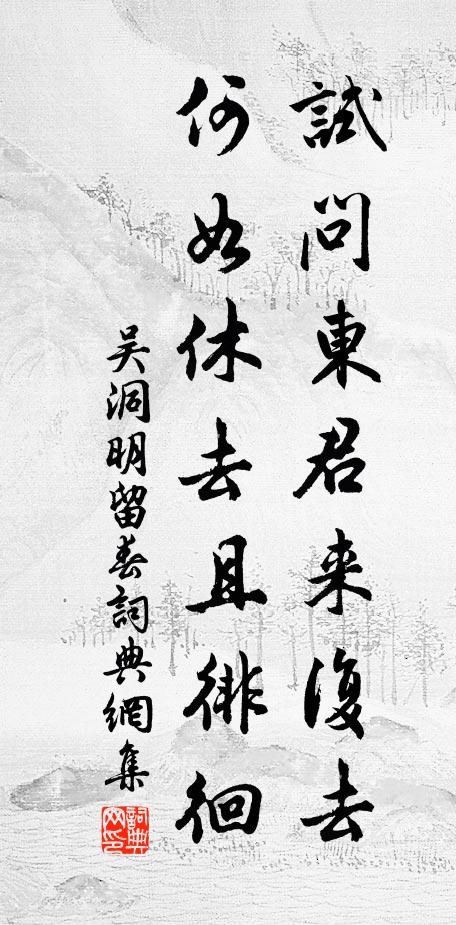 試問東君来復去
何如休去且徘徊
吴洞明留春詞典網集
詞典網印